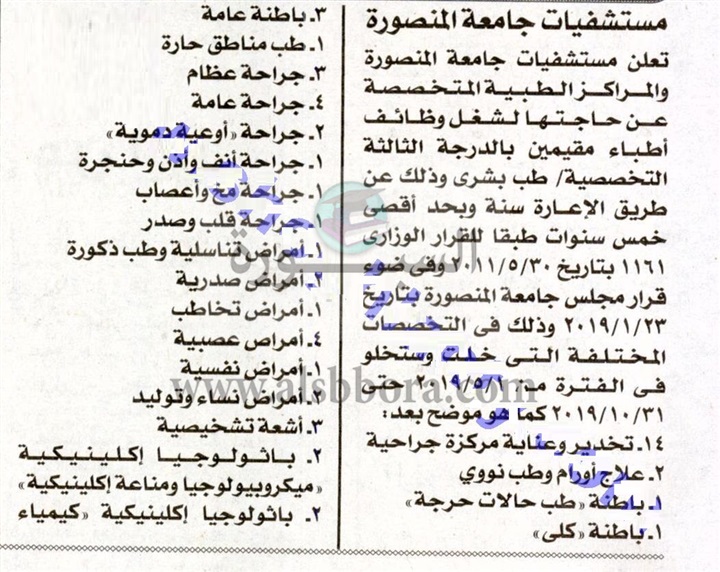 مستشفيات جامعة المنصورة
تعلن مستشفيات جامعة المنصورة
والمراكز الطبية المتخصصة
عن حاجتها لشغل وظائف
أطباء مقيمين بالدرجة الثالثة
التخصصية/ طب بشرى وذلك عن
طريق الإعارة سنة وبحد أقصى
خمس سنوات طبقا للقرار الوزارى
١١٦١ بتاريخ ٢٠١١/٥/٣٠ وفى ضوء
قرار مجلس جامعة المنصورة بتاريخ
٢٠١٩/١/٢٣ وذلك فى التخصصات
المختلفة التى خلت وستخلو
فى الفترة من ٢٠١٩/٥/١ حتى
٢٠١٩/١٠/٣١ كما هو موضح بعد:
١٤. تخدير وعناية مركزة جراحية
٢. علاج أورام وطب نووي
١. باطنة «طب حالات حرجة»
١. باطنة «كلى»
٣. باطنة عامة
١. طب مناطق حارة
٣. جراحة عظام
٤. جراحة عامة
٢. جراحة «أوعية دموية»
١. جراحة أنف وأذن وحنجرة
١. جراحة مخ وأعصاب
١. جراحة قلب وصدر
١. أمراض تناسلية وطب ذكورة
٢. أمراض صدرية
١. أمراض تخاطب
٤. أمراض عصبية
١. أمراض نفسية
٢. أمراض نساء وتوليد
٣. أشعة تشخيصية
٢. باثولوجيا إكلينيكية
«ميكروبيولوجيا ومناعة إكلينيكية»
٢. باثولوجيا إكلينيكية «كيمياء
www.alsbbora.com